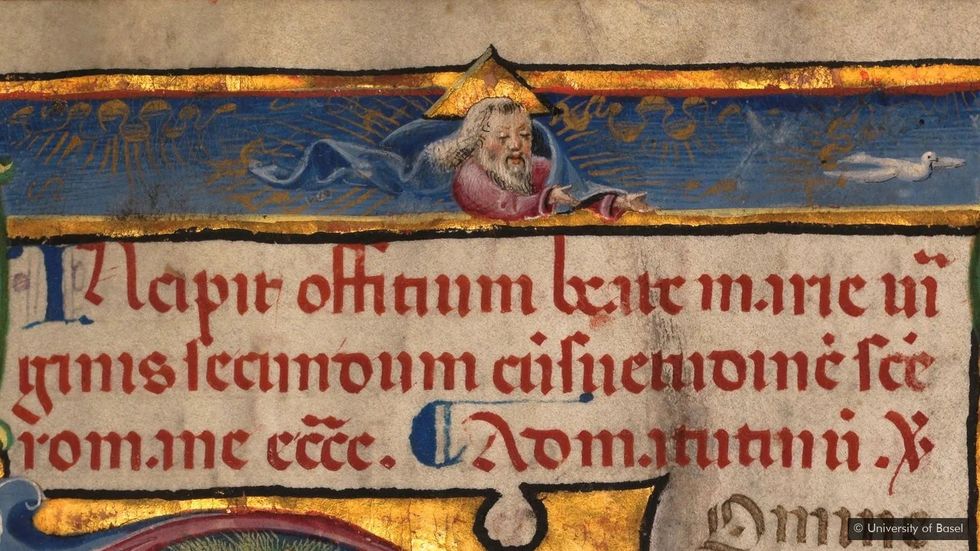 INcipit offitium beate marie uĩ
ginis ſecundum cũſuetudinē ſcē
romane eccē. ¶ Admatutinū. ℣
Domine
© University of Basel